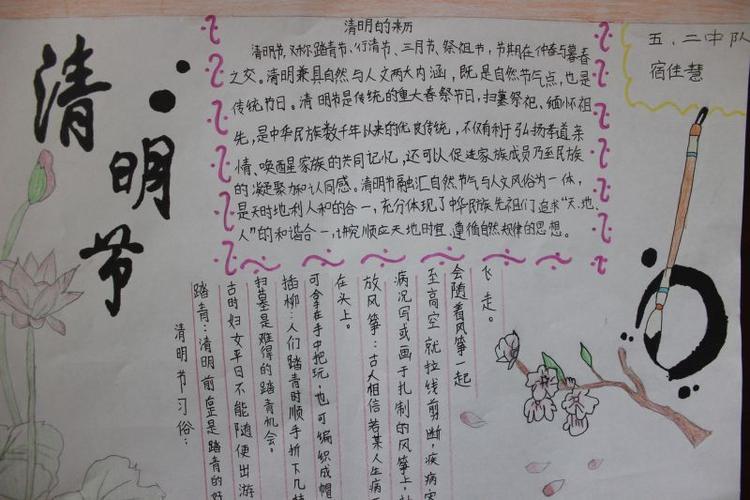 清明节
清明的来历
清明节,又称踏青节、行清节、三月节、祭祖节,节期在仲春与暮春
之交。清明兼具自然与人文两大内涵,既是自然节气点,也是
传统节日。清明节是传统的重大春祭节日,扫墓祭祀、缅怀祖
先,是中华民族数千年以来的优良传统,不仅有利于弘扬孝道亲
情、唤醒家族的共同记忆,还可以促进家族成员乃至民族
的凝聚力和认同感。清明节融汇自然节气与人文风俗为一体,
是天时地利人和的合一,充分体现了中华民族先祖们追求“天、地、
人”的和谐合一,讲究顺应天地时宜、遵循自然规律的思想。
五、二中队
宿佳慧
清明节习俗:
踏青:清明前后正是踏青的好
古时妇女平日不能随便出游
扫墓是难得的踏青机会。
插柳:人们踏青时顺手折下几枝
可拿在手中把玩,也可编织成帽
在头上。
放风筝:古人相信若某人生病
病况写或画于扎制的风筝上,
至高空就拉线剪断,疾病灾
会随着风筝一起
飞走。